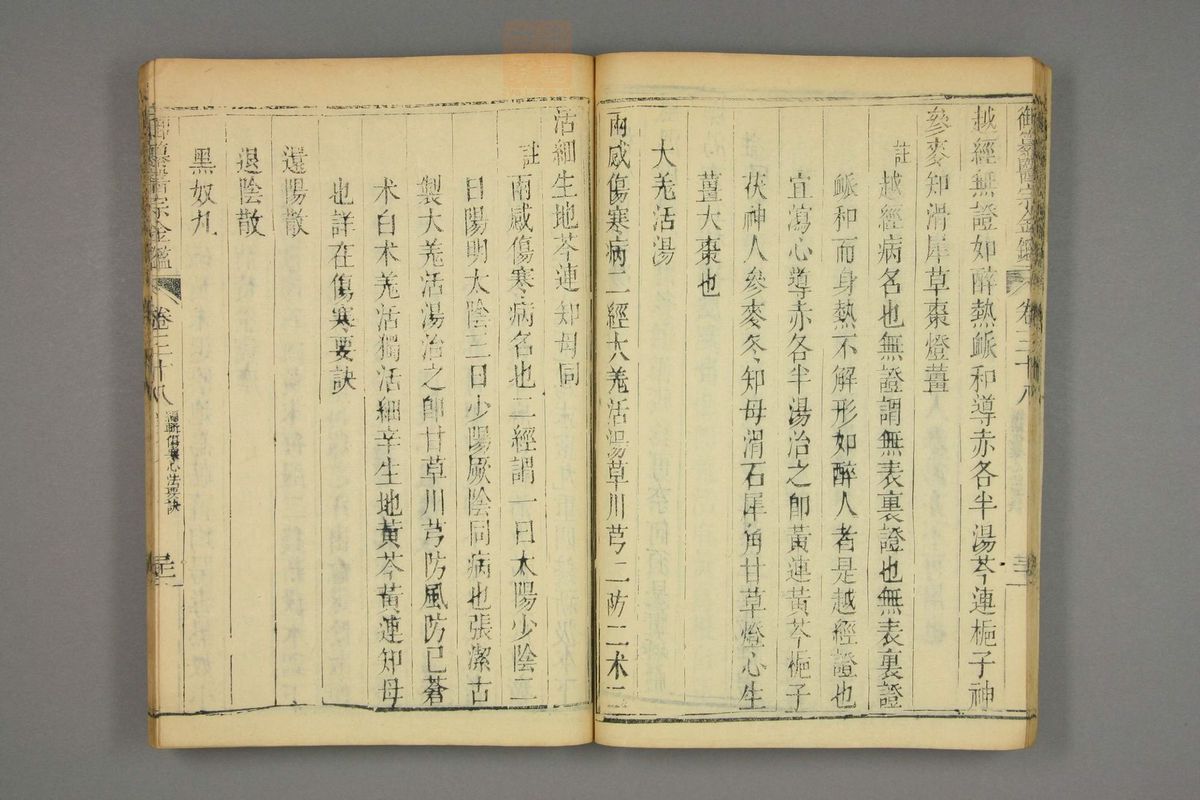 御纂醫宗金鑑 卷三十八
越經無證如醉熱脈和導赤各半湯芩連梔子神
參麥知滑犀草棗燈薑
註
越經病名也無證謂無表裏證也無表裏證
脈和而身熱不解形如醉人者是越經證也
宜瀉心導赤各半湯治之卽黃連黃芩梔子
茯神人參麥冬知母滑石犀角甘草燈心生
薑大棗也
大羌活湯
兩感傷寒病二經大羌活湯草川芎二防二术二
活細生地芩連知母同
註
兩感傷寒病名也二經謂一日太陽少陰二
日陽明太陰三日少陽厥陰同病也張潔古
製大羌活湯治之卽甘草川芎防風防己蒼
术白术羌活獨活細辛生地黃芩黃連知母
也詳在傷寒要訣
還陽散
退陰散
黑奴丸
御纂醫宗金鑑 卷三十八 編輯傷寒心法要訣